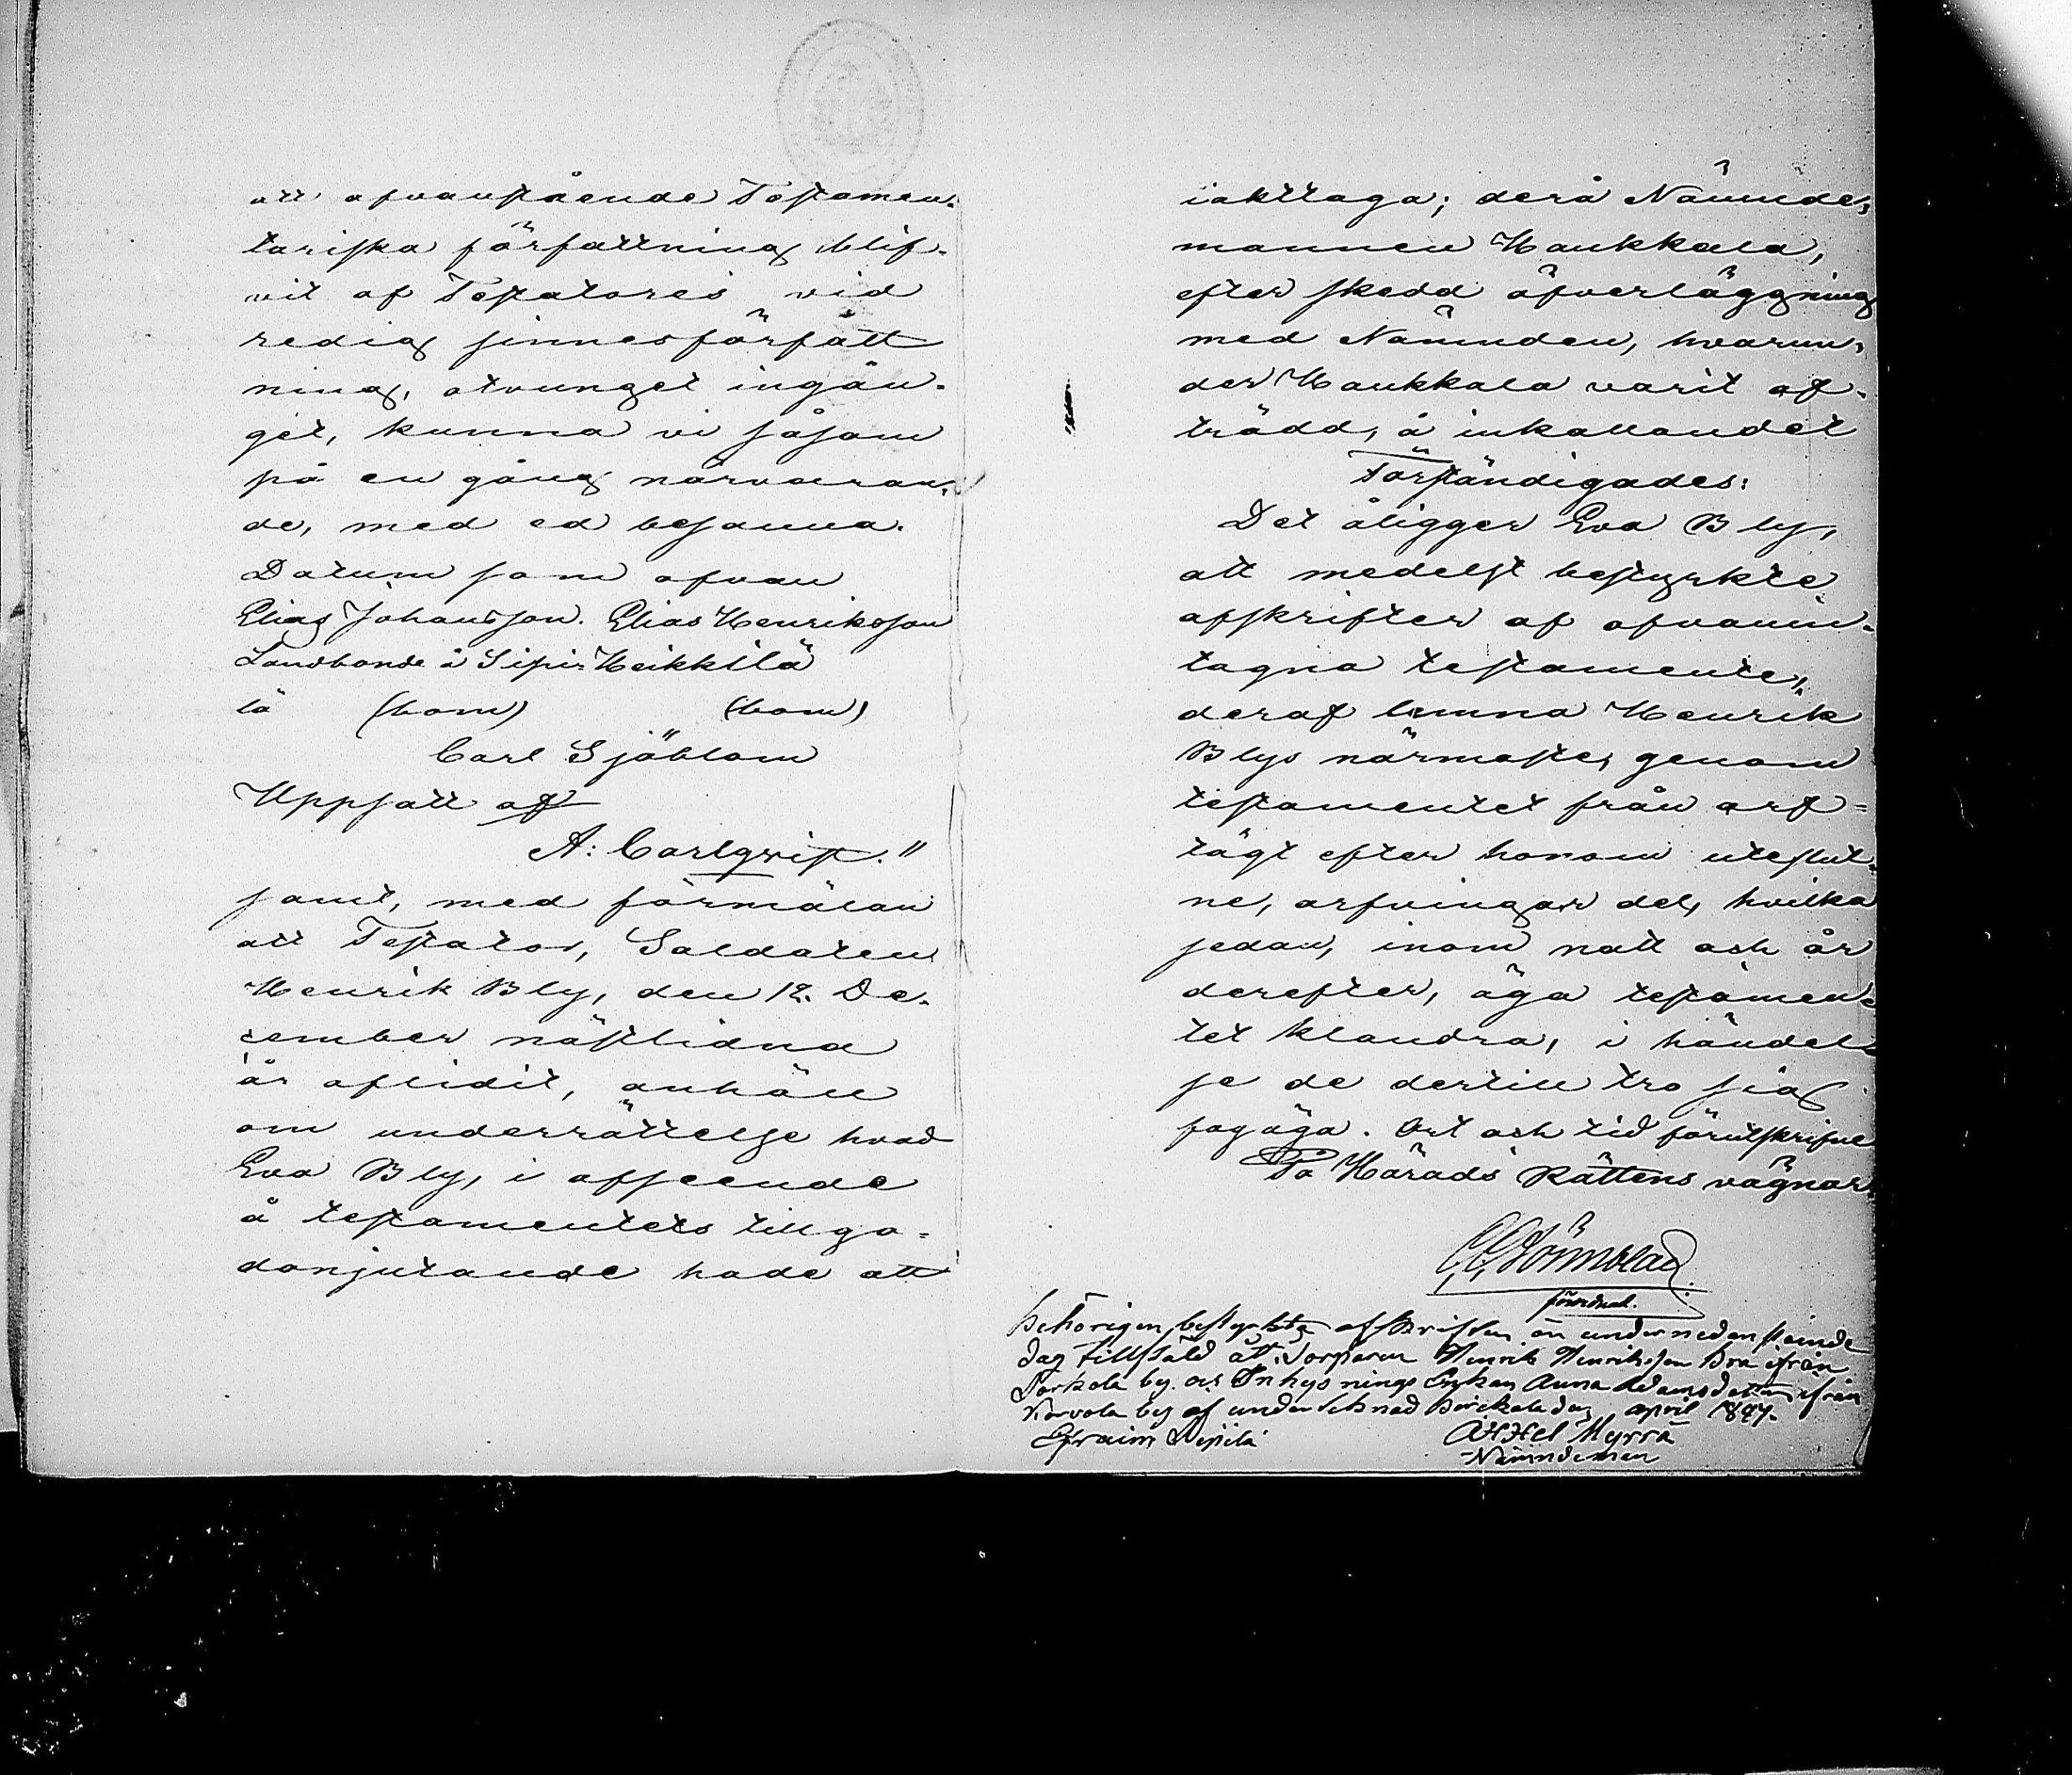 att ofvanstående Testamen-
tariska författning blif-
vit af Testatores vid
redig sinnesförfatt
ning, otvunget ingån-
get, kunna vi såsom
på en gång närvaran-
de, med ed besanna.
Datum som ofvan
Elias Johansson. Elias Henriksson
Landbonde å Sipi Heikkilä
lä (bom) (bom)
Carl Sjöblom
Uppsatt af
A: Carlqvist."
samt, med förmälan
att Testator, Soldaten
Henrik Bly, den 12. De-
cember nästlidna
år aflidit, anhöll
om underrättelse hvad
Eva Bly, i afseende
å testamentets tillgo-
donjutande hade att
iakttaga; derå Nämnde-
mannen Haukkala,
efter skedd öfverläggning
med Nämnden, hvarun-
der Haukkala varit af-
trädd, å inkallandet
Förständigades:
Det åligger Eva Bly,
att medelst bestyrkte
afskrifter af ofvanin-
tagna testamente,
deraf lemna Henrik
Blys närmaste, genom
testamentet från arf-
tägt efter honom uteslut-
ne, arfvingar del, hvilka
sedan, inom natt och år
derefter, äga testamen-
tet klandra, i händel-
se de dertill tro sig
fog äga. Ort och tid förutskrifne
På Härads Rättens vägnar
förordnad.
behörigen bestyrkta afskriften än underneden stående
dag tillstäld åt Torparen Henrik Henriksson Bra ifrån
by och Inhysnings Enkan Anna Adamsdotter ifrån
by af undertecknad dag april 1847.
Efraim Axel Myrrä
Nämndeman